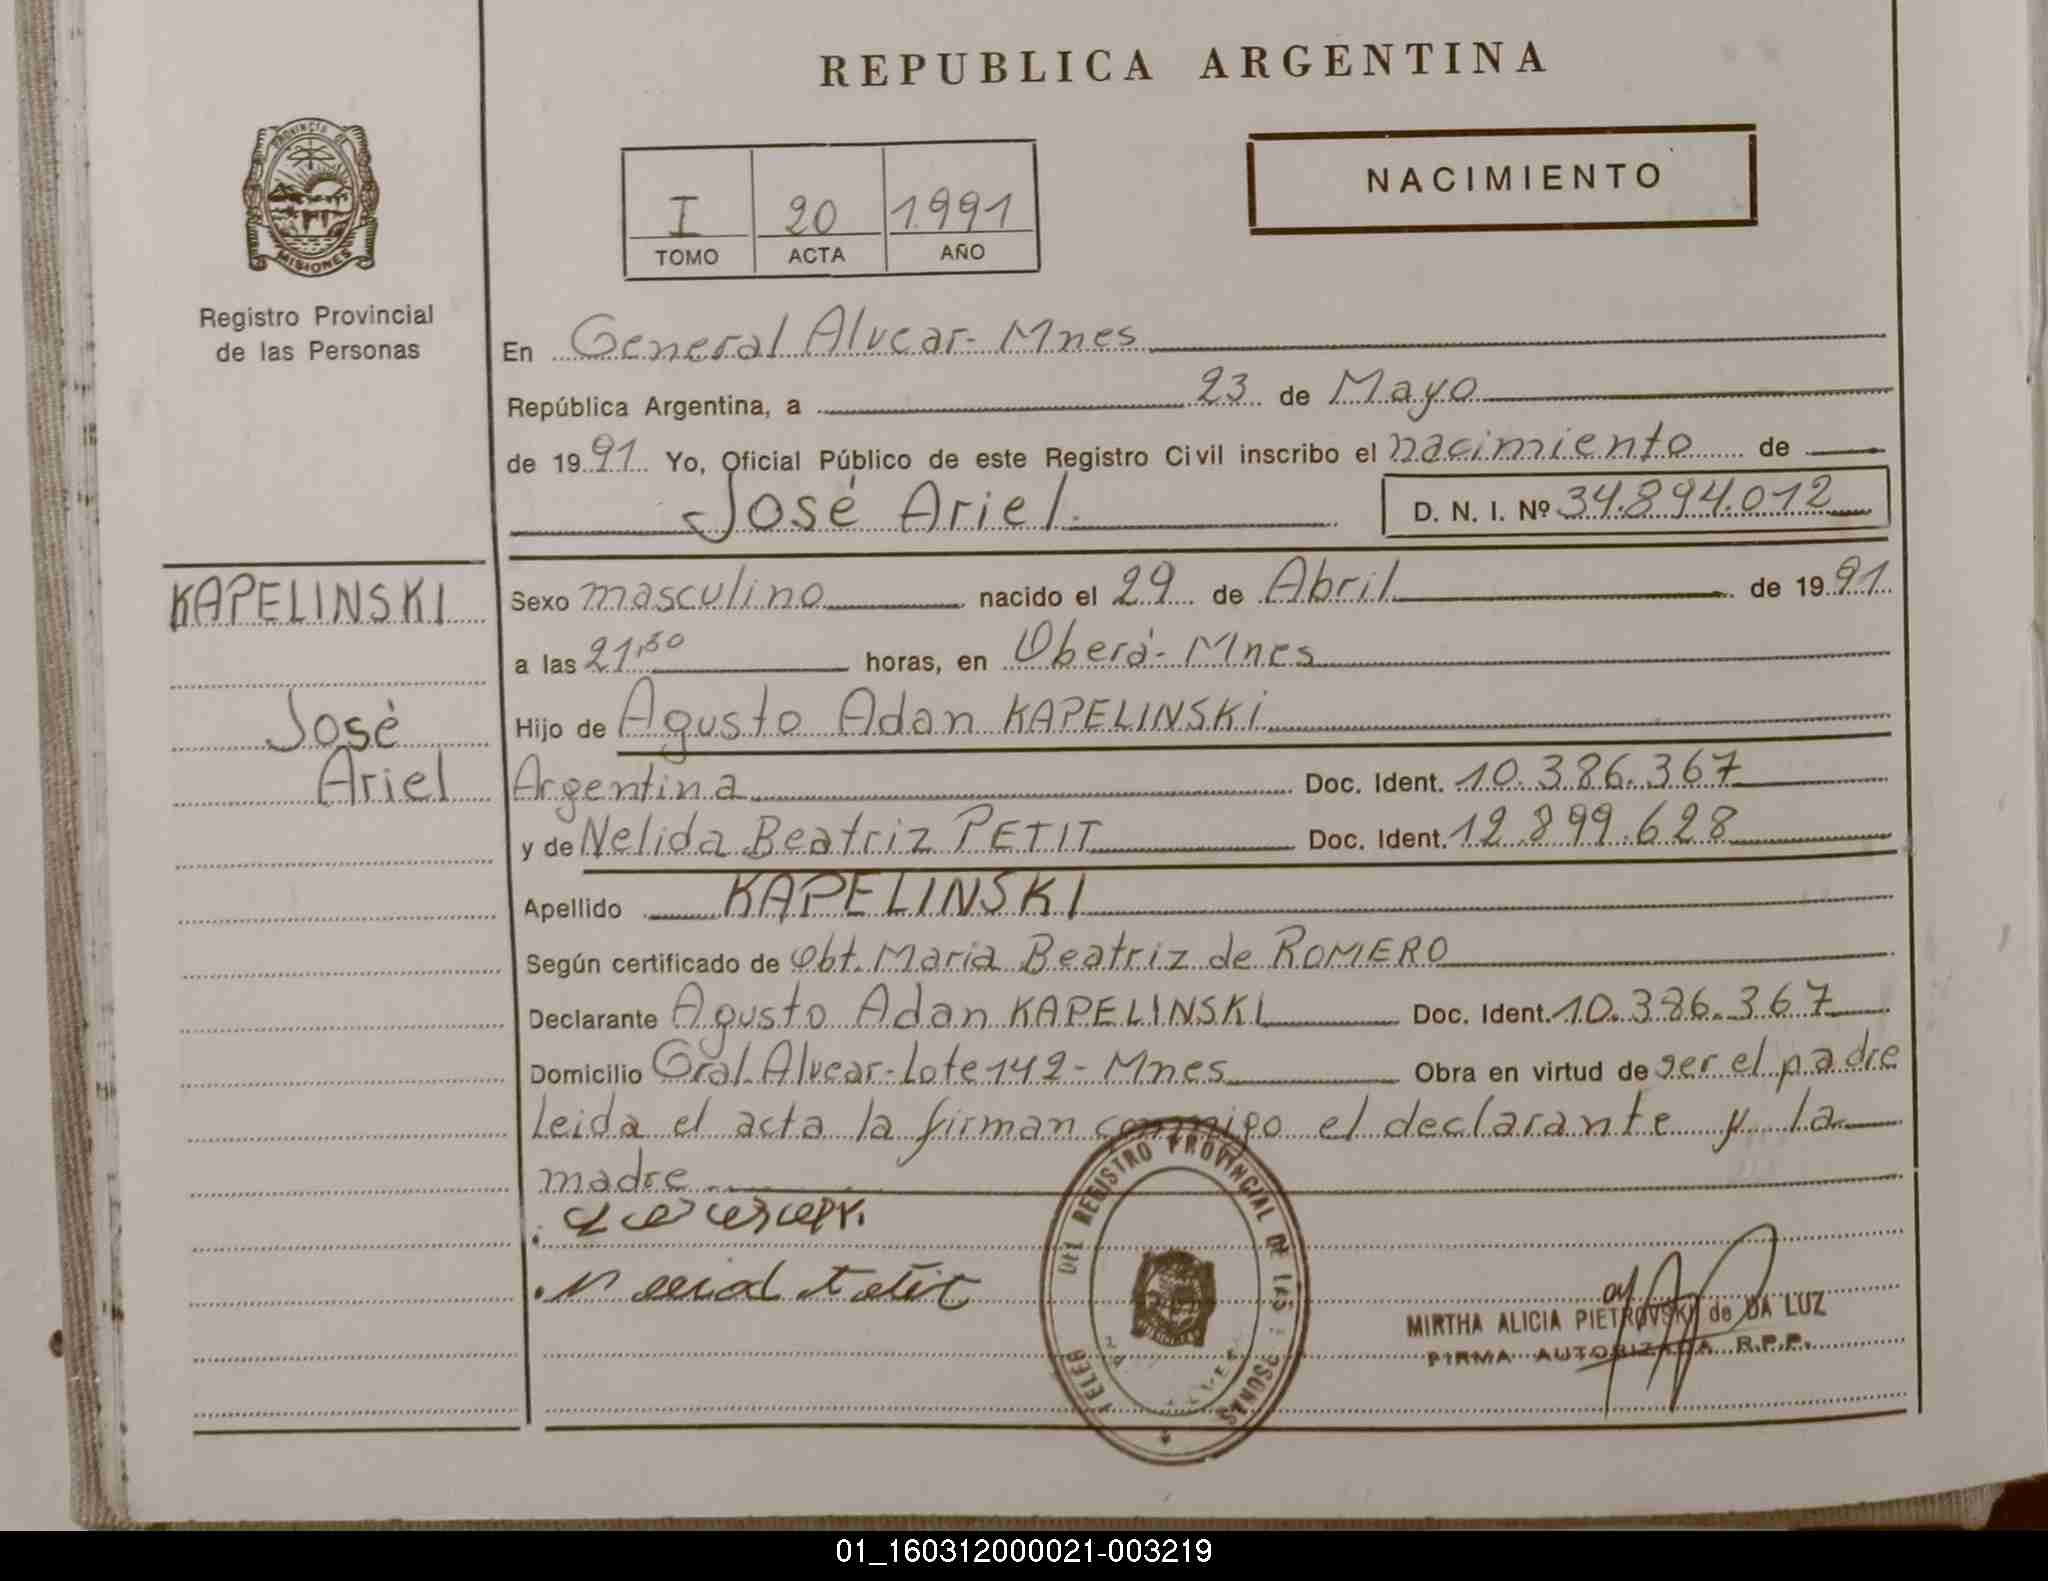 REPUBLICA ARGENTINA
PROVINCIA DE
MISIONES
Registro Provincial
de las Personas
NACIMIENTO
I 20 1991
TOMO ACTA AÑO
En General Alvear - Mnes
República Argentina, a 23 de Mayo
de 1991 Yo, Oficial Público de este Registro Civil inscribo el nacimiento de
José Ariel D. N. I. Nº 34.894.012
KAPELINSKI
José
Ariel
Sexo masculino nacido el 29 de Abril de 1991
a las 21,50 horas, en Oberá - Mnes
Hijo de Agusto Adan KAPELINSKI
Argentina Doc. Ident. 10.386.367
y de Nelida Beatriz PETIT Doc. Ident. 12.899.628
Apellido KAPELINSKI
Según certificado de Obt. Maria Beatriz de ROMERO
Declarante Agusto Adan KAPELINSKI Doc. Ident. 10.386.367
Domicilio Gral. Alvear - Lote 142 - Mnes Obra en virtud de ser el padre
leida el acta la firman conmigo el declarante y la
madre
DEL REGISTRO PROVINCIAL DE LAS PERSONAS
MIRTHA ALICIA PIETROVSKI de DA LUZ
FIRMA AUTORIZADA R.P.P.
01_160312000021-003219